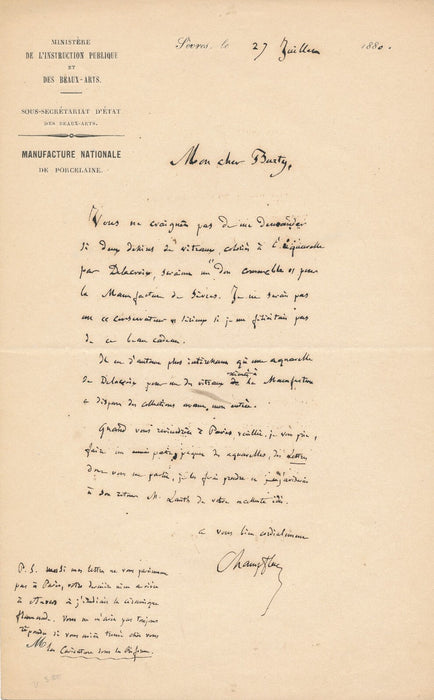 MINISTÈRE
DE L'INSTRUCTION PUBLIQUE
ET
DES BEAUX-ARTS.
SOUS-SECRÉTARIAT D'ÉTAT
DES BEAUX-ARTS.
MANUFACTURE NATIONALE
DE PORCELAINE.
Sèvres, le 27 Juillet 1880.
Mon cher Burty,
Vous ne craignez pas de me demander
si deux dessins de vitraux, coloriés à l'aquarelle
par Delacroix, seraient un don convenable pour
la Manufacture de Sèvres. Je ne serais pas
un conservateur sérieux si je me félicitais pas
de ce beau cadeau.
d'autant plus intéressant qu'une aquarelle
de Delacroix pour un des vitraux de la Manufacture
a disparu des collections avant mon entrée.
Quand vous reviendrez à Paris veuillez, je vous prie,
faire un paquet des aquarelles, des Lettres
dont vous me parlez, je les ferai prendre
à son retour M. Lauth de votre excellente idée.
a vous bien cordialement
Champfleury
P. S. mes lettres ne vous parviennent
pas à Paris, votre
à Anvers où j'étudiais la céramique
flamande. Vous ne m'avez pas toujours
répondu si vous aviez chez vous
la Caricature sous la Réforme.